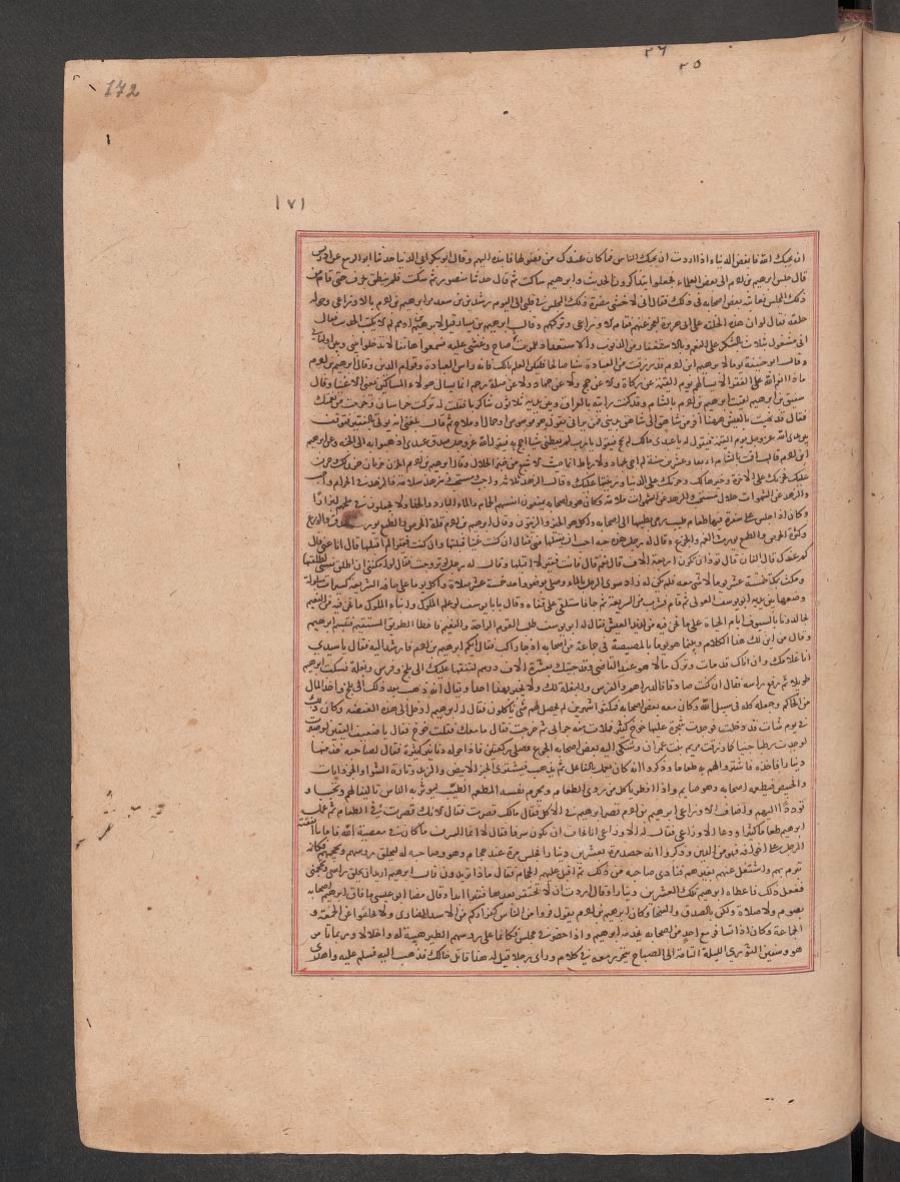 ٢٦
٢٥
172
١٧١
ان يحبك الله فابغض الدنيا واذا اردت ان يحبك الناس فما كان عندك من فضولها فانبذه اليهم وقال ابو بكر بن ابي الدنيا حدثنا ابو الربيع عن ادريس
قال جلس ابرهيم بن ادهم الى بعض العلماء فجعلوا يتذاكرون الحديث وابرهيم ساكت ثم قال حدثنا منصور ثم سكت فلم ينطق بحرف حتى قام من
ذلك المجلس فعاتبه بعض اصحابه في ذلك فقال اني لاخشى مضرة ذلك المجلس في قلبي الى اليوم
حلقه فقال لو ان هذه الحلقة على ابي هريرة لعجز عنهم فقام الاوزاعي وتركهم وقال ابرهيم بن بشار قيل لابرهيم بن ادهم لم لا تكتب الحديث فقال
اني مشغول بثلاث بالشكر على النعم وبالاستغفار من الذنوب وبالاستعداد للموت ثم صاح وغشي عليه فسمعوا هاتفا لا تدخلوا بيني وبين اوليائي
وقال ابو حنيفة يوما لابرهيم ابن ادهم قد رزقت من العبادة شيئا صالحا فليكن العلم من بالك فانه راس العبادة وقوام الدين وقال ابرهيم بن ادهم
ماذا انعم الله على الفقرا لا يسالهم يوم القيمة عن زكاة ولا عن حج ولا عن جهاد ولا عن صلة رحم انما يسال هولاء المساكين يعني الاغنيا وقال
شقيق بن ابرهيم لقيت ابرهيم بن ادهم بالشام وقد كنت رايته بالعراق وبين يديه ثلاثون شاكريا فقلت له تركت خراسان وخرجت من نعمتك
فقال قد تهنيت بالعيش ههنا افر بديني من شاهق الى شاهق فمن يراني يقول هو موسوس او حمال او ملاح ثم قال بلغني انه يوتى بالفقير
يدي الله عز وجل يوم القيمة فيقول له يا عبدي مالك لم تحج فيقول يا رب لم تعطني شيا احج به فيقول الله عز وجل صدق عبدي اذهبوا به الى الجنة وعن ابرهيم
ابن ادهم قال اقمت بالشام اربعا وعشرين سنة لم اجئ لجهاد ولا رباط انما جيت لاشبع من خبز الحلال وقال ابرهيم بن ادهم الحزن حزنان حزن لك وحزن
عليك فحزنك على الاخرة وخيرها لك وحزنك على الدنيا وزينتها عليك وقال الزهد ثلاثة واجب ومستحب وزهد سلامة فالزهد في الحرام واجب
والزهد عن الشهوات الحلال مستحب والزهد عن الشبهات سلامة وكان هو واصحابه يمنعون انفسهم الحمام والماء البارد والحذا ولا يجعلون في ملحهم ابزارا
وكان اذا جلس على سفرة فيها طعام طيب رمى بطيبها الى اصحابه واكل هو الخبز والزيتون وقال ابرهيم بن ادهم قلة الحرص والطمع تورث الصدق والورع
وكثرة الحرص والطمع تورث الغم والجزع وقال له رجل هذه جبة احب ان تقبلها مني فقال ان كنت غنيا قبلتها وان كنت فقيرا لم اقبلها قال انا غني قال
كم عندك قال الفان قال تود ان تكون اربعة الاف قال نعم قال فانت فقير لا اقبلها وقال له رجل لو تزوجت فقال لو امكنني ان اطلق نفسي لطلقتها
ومكث بمكة خمسة عشر يوما لا شي معه فلم يكن له زاد سوى الرمل بالماء وصلى بوضوء واحد خمسة عشر صلاة واكل يوما على حافة الشريعة كسيرات مبلولة
وضعها بين يديه ابو يوسف الغولي ثم قام فشرب من الشريعة ثم جا فاستلقى على قفاه وقال يا با يوسف لو علم الملوك وابناء الملوك ما نحن فيه من النعيم
لجالدونا بالسيوف ايام الحياة على ما نحن فيه من لذيذ العيش فقال له ابو يوسف طلب القوم الراحة والنعيم فاخطاوا الطريق المستقيم فتبسم ابرهيم
وقال من اين لك هذا الكلام وبينما هو يوما بالمصيصة في جماعة من اصحابه اذ جا راكب فقال ايكم ابرهيم بن ادهم فارشد اليه فقال يا سيدي
انا غلامك وان اباك قد مات وترك مالا هو عند القاضي وقد جيتك بعشرة الاف درهم لتنفقها عليك الى بلخ وفرس وبغلة فسكت ابرهيم
طويلا ثم رفع راسه فقال ان كنت صادقا فالدراهم والفرس والبغلة لك ولا تخبر بهذا احدا ويقال انه ذهب بعد ذلك الى بلخ واخذ المال
من الحاكم وجعله كله في سبيل الله وكان معه بعض اصحابه فمكثوا شهرين لم يحصل لهم شي ياكلونه فقال له ابرهيم ادخل الى هذه الغيضة وكان ذلك
في يوم شات قال فدخلت فوجدت شجرة عليها خوخ كثير فملات منه جرابي ثم خرجت فقال ما معك فقلت خوخ فقال يا ضعيف اليقين لو صبرت
لوجدت رطبا جنيا كما رزقت مريم بنت عمران وشكى اليه بعض اصحابه الجوع فصلى ركعتين فاذا حوله دنانير كثيرة فقال لصاحبه خذ منها
دينارا فاخذه فاشترى لهم به طعاما وذكروا انه كان يعمل بالفاعل ثم يذهب فيشتري الخبز الابيض والزبد وتارة الشوا والجوذابات
والخبيص فيطعمه اصحابه وهو صايم واذا افطر ياكل من ردي الطعام ويحرم نفسه المطعم الطيب ليوثر به الناس تاليفا لهم وتحببا و
توددا اليهم واضاف الاوزاعي ابرهيم بن ادهم فقصر ابرهيم في الاكل فقال مالك قصرت فقال لانك قصرت في الطعام ثم عمل
ابرهيم طعاما كثيرا ودعا الاوزاعي فقال له الاوزاعي اما تخاف ان يكون سرفا فقال لا انما السرف ما كان في معصية الله فاما ما انفقه
الرجل على اخوانه فهو من الدين وذكروا انه حصد مرة بعشرين دينارا فجلس مرة عند حجام وهو وصاحب له ليحلق روسهم ويحجمهم فكانه
تبرم بهم واشتغل عنهم بغيرهم فتاذى صاحبه من ذلك ثم اقبل عليهم الحجام فقال ماذا تريدون قال ابرهيم اريد ان تحلق راسي وتحجمني
ففعل ذلك فاعطاه ابرهيم تلك العشرين دينارا وقال اردت ان لا تحتقر بعدها فقيرا ابدا وقال مضا ابن عيسى ما فاق ابرهيم اصحابه
بصوم ولا صلاة ولكن بالصدق والسخا وكان ابرهيم بن ادهم يقول فروا من الناس كفراركم من الاسد الضاري ولا تخلفوا عن الجمعة و
الجماعة وكان اذا سافر مع احد من اصحابه يخدمه ابرهيم واذا حضر في مجلس فكانما على روسهم الطير هيبة له واجلالا وربما تسامر
هو وسفين الثوري الليلة التامة الى الصباح